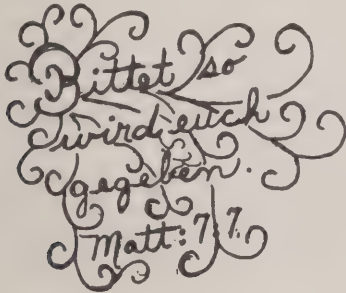 Bittet so
wird euch
gegeben.
Matt: 7.7.